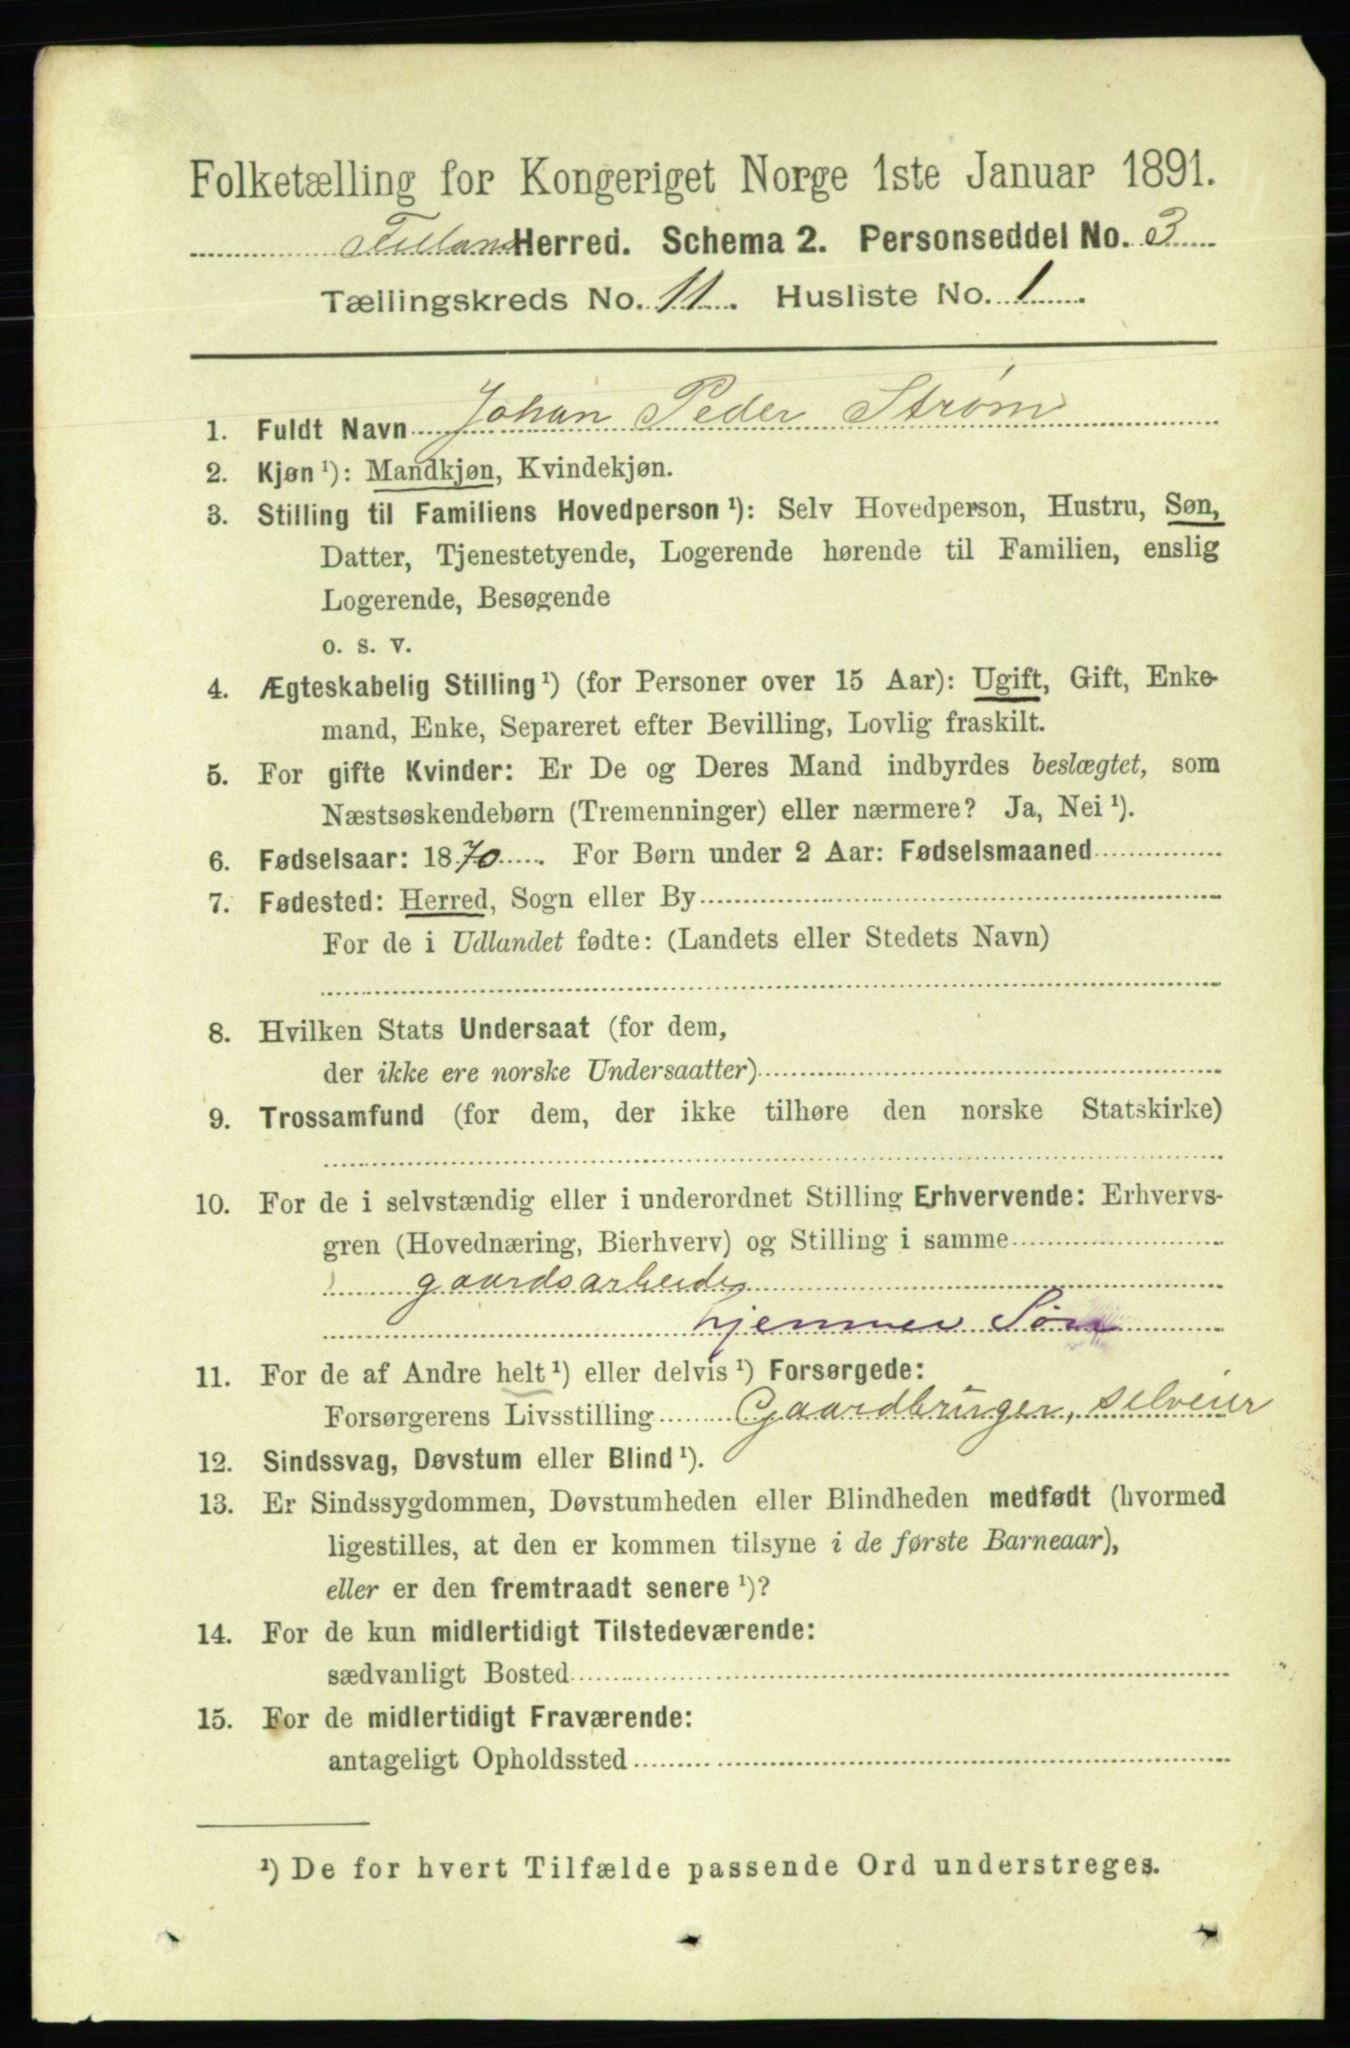 Folketælling for Kongeriget Norge 1ste Januar 1891.
Fillans Herred. Schema 2. Personseddel No. 3
Tællingskreds No. 11. Husliste No. 1.
1. Fuldt Navn Johan Peder Strøm
2. Kjøn ¹): Mandkjøn, Kvindekjøn.
3. Stilling til Familiens Hovedperson ¹): Selv Hovedperson, Hustru, Søn,
Datter, Tjenestetyende, Logerende hørende til Familien, enslig
Logerende, Besøgende
o. s. v.
4. Ægteskabelig Stilling ¹) (for Personer over 15 Aar): Ugift, Gift, Enke-
mand, Enke, Separeret efter Bevilling, Lovlig fraskilt.
5. For gifte Kvinder: Er De og Deres Mand indbyrdes beslægtet, som
Næstsøskendebørn (Tremenninger) eller nærmere? Ja, Nei ¹).
6. Fødselsaar: 1870. For Børn under 2 Aar: Fødselsmaaned
7. Fødested: Herred, Sogn eller By
For de i Udlandet fødte: (Landets eller Stedets Navn)
8. Hvilken Stats Undersaat (for dem,
der ikke ere norske Undersaatter)
9. Trossamfund (for dem, der ikke tilhøre den norske Statskirke)
10. For de i selvstændig eller i underordnet Stilling Erhvervende: Erhvervs-
gren (Hovednæring, Bierhverv) og Stilling i samme
gaardsarbeide
hjemmev Søn
11. For de af Andre helt ¹) eller delvis ¹) Forsørgede:
Forsørgerens Livsstilling Gaardbruger, selveier
12. Sindssvag, Døvstum eller Blind ¹).
13. Er Sindssygdommen, Døvstumheden eller Blindheden medfødt (hvormed
ligestilles, at den er kommen tilsyne i de første Barneaar),
eller er den fremtraadt senere ¹)?
14. For de kun midlertidigt Tilstedeværende:
sædvanligt Bosted
15. For de midlertidigt Fraværende:
antageligt Opholdssted
¹) De for hvert Tilfælde passende Ord understreges.